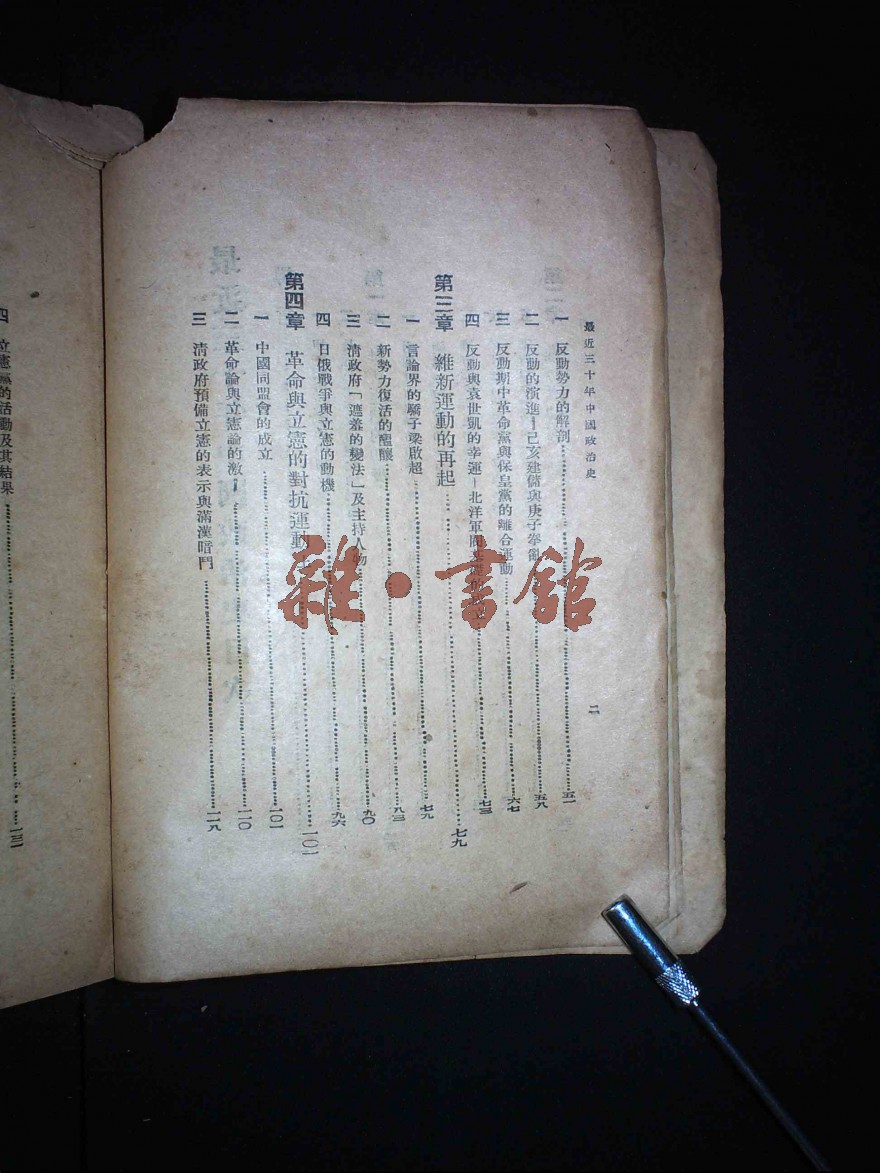 最近三十年中國政治史
二
一 反動勢力的解剖 五一
二 反動的演進—己亥建儲與庚子拳 五九
三 反動期中革命黨與保皇黨的離合運動 六七
四 反動與袁世凱的幸運—北洋軍閥 七三
第三章 維新運動的再起 七九
一 言論界的驕子梁啟超 七九
二 新勢力復活的醞釀 八三
三 清政府「遮羞的變法」及主持人物 九〇
四 日俄戰爭與立憲的動機 九六
第四章 革命與立憲的對抗運動 一〇一
一 中國同盟會的成立 一〇一
二 革命論與立憲論的激 一一〇
三 清政府預備立憲的表示與滿漢暗鬥 一一九
四 立憲黨的活動及其結果
雜·書館